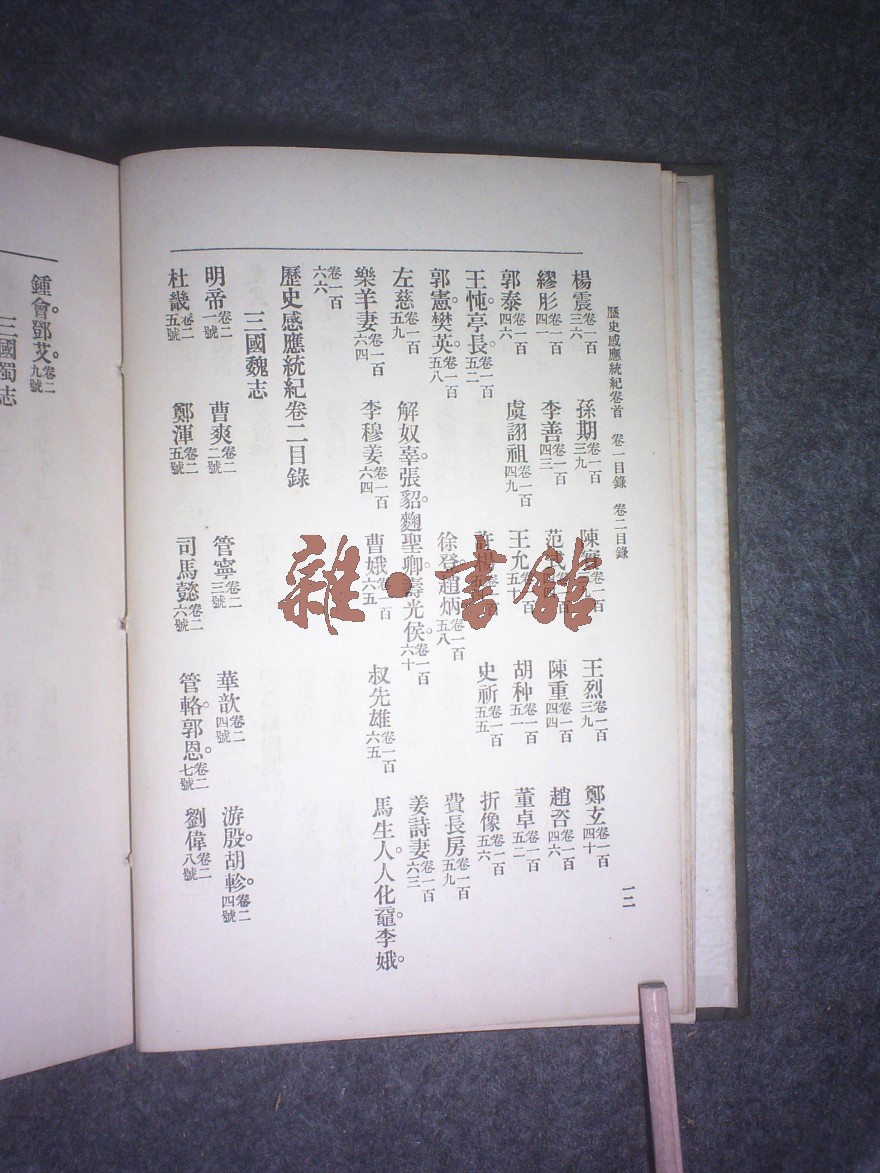 歷史感應統紀卷首　卷一目錄　卷二目錄　一二
楊震卷一百三六　孫期卷一百三九　陳　一百　王烈卷一百三九　鄭玄卷一百四十
繆肜卷一百四一　李善卷一百四三　范式　一百　陳重卷一百四四　趙咨卷一百四六
郭泰卷一百四六　虞詡祖卷一百四九　王允卷一百五十　胡种卷一百五一　董卓卷一百五二
王忳。亭長。卷一百五二　許楊　一百　史祈卷一百五五　折像卷一百五六
郭憲。樊英。卷一百五八　徐登。趙炳卷一百五八　費長房卷一百五九
左慈卷一百五九　解奴辜。張貂。麴聖卿。壽光侯。卷一百六十　姜詩妻卷一百六三
樂羊妻卷一百六四　李穆姜卷一百六四　曹娥卷一百六五　叔先雄卷一百六五　馬生人。人化黿。李娥。
卷一百六六
歷史感應統紀卷二目錄
三國魏志
明帝卷二一號　曹爽卷二二號　管寧卷二三號　華歆卷二四號　游殷。胡軫。卷二四號
杜畿卷二五號　鄭渾卷二五號　司馬懿卷二六號　管輅。郭恩。卷二七號　劉偉卷二八號
鍾會。鄧艾。卷二九號
三國蜀志
雜·書館